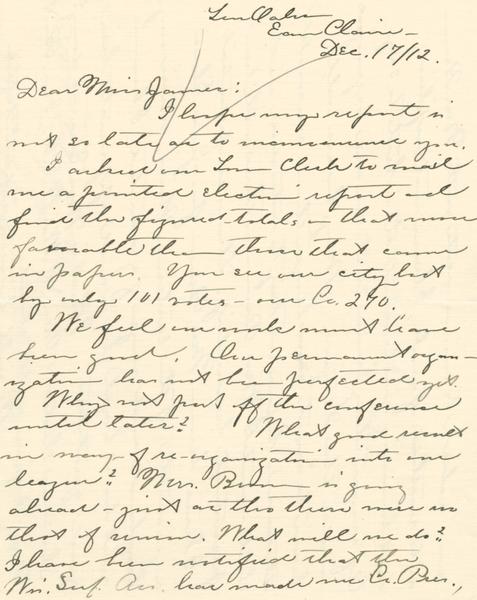 Eau Claire -
Dec. 17/12.
Dear Miss James:
I hope my report is
not so late as to inconvenience you.
I asked our Clerk to mail
me a printed election report and
find the figured totals on that more
favorable than those that came
in papers. You see our city lost
by only 101 votes - our Co. 270.
We feel our work must have
been good. Our permanent organ-
ization has not been perfected yet.
Why not put off the conference
until later? What good result
in way of re-organization into one
league? Mrs. Brown is going
ahead - just as tho there were no
thot of union. What will we do?
I have been notified that the
Wis. Suf. As. has made me Co. Pres.,